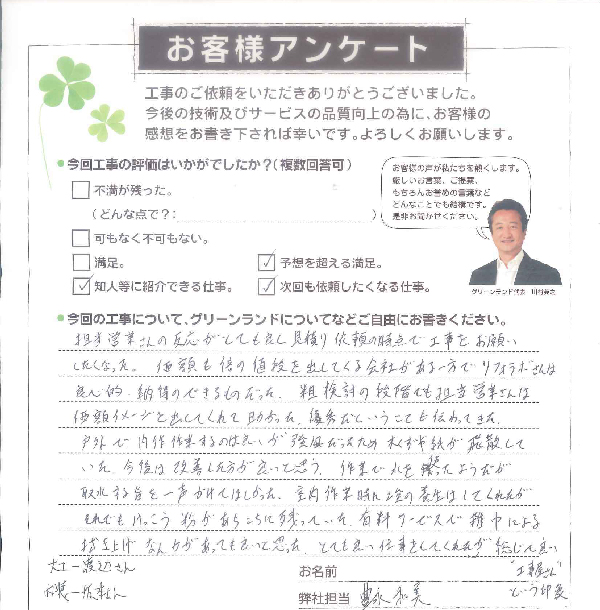 お客様アンケート
工事のご依頼をいただきありがとうございました。
今後の技術及びサービスの品質向上の為に、お客様の
感想をお書き下されば幸いです。よろしくお願いします。
今回工事の評価はいかがでしたか？（複数回答可）
不満が残った。
（どんな点で？： ）
可もなく不可もない。
満足。
予想を超える満足。
知人等に紹介できる仕事。
次回も依頼したくなる仕事。
お客様の声が私たちを動くします。
厳しいお言葉、ご提案、
もちろんお誉めの言葉など
どんなことでも結構です。
是非お聞かせください。
グリーンランド代表
今回の工事について、グリーンランドについてなどご自由にお書きください。
担当営業さんの反応がとても良し見積り依頼の時点で工事をお願い
したくなった。価額も倍の値段を出してくる会社がある一方でリフォームさんは
良心的、納得のできるものだった。粗検討の段階でも担当営業さんは
価額イメージを出してくれて助かった。優秀だということも伝わってきた。
戸外で内作作業するのは良いが強風だったため木くずや紙が飛散して
いた。今後は改善した方が良いと思う。作業で穴を
取れる旨を一声かけてほしかった。室内作業時に一定の養生はしてくれたが
それでもけっこう粉があちこちに残っていた。有料サービスで
なんかがあっても良いと思った。とても良い仕事をしてくれたが総じて良い
"工事屋さん"
という印象
大工
さん
お名前
弊社担当